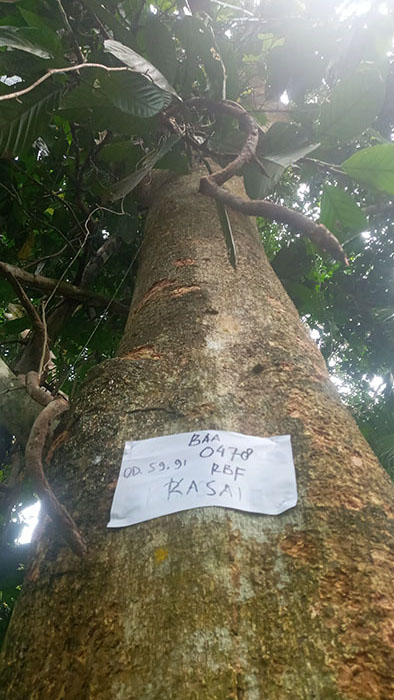 BAA
0478
OD. 59.91 RBF
KASAI